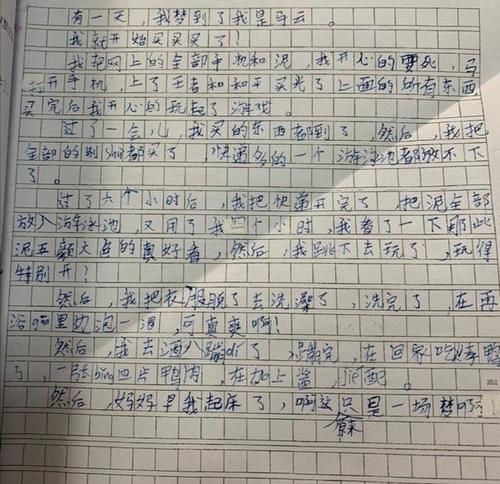 有一天，我梦到了我是马云。
我就开始买买买了！
我把网上的全部手机和泥，我开心的要死，马
打开手机，上了王者和和平买光了上面的所有东西
买完后我开心的玩起了游戏。
过了一会儿，我买的东西都到了，然后，我把
全部的别shu都买了，快递多的一个游泳池都放不下
了。
过了六个小时后，我把快递开完了，把泥全部
放入游泳池，又用了我四个小时，我看了一下那此
泥五颜六色的真好看，然后，我跳下去玩了，玩得
特别开？
然后，我把衣服脱了去洗澡了，洗完了，在再
浴gang里边泡一泡，可真爽啊！
然后，我去酒八蹦di了，蹦完，在回家吃烤鸭
了，一张bing四片鸭肉，在加上酱，
然后，妈妈早我起床了，啊这只是一场梦啊
原来